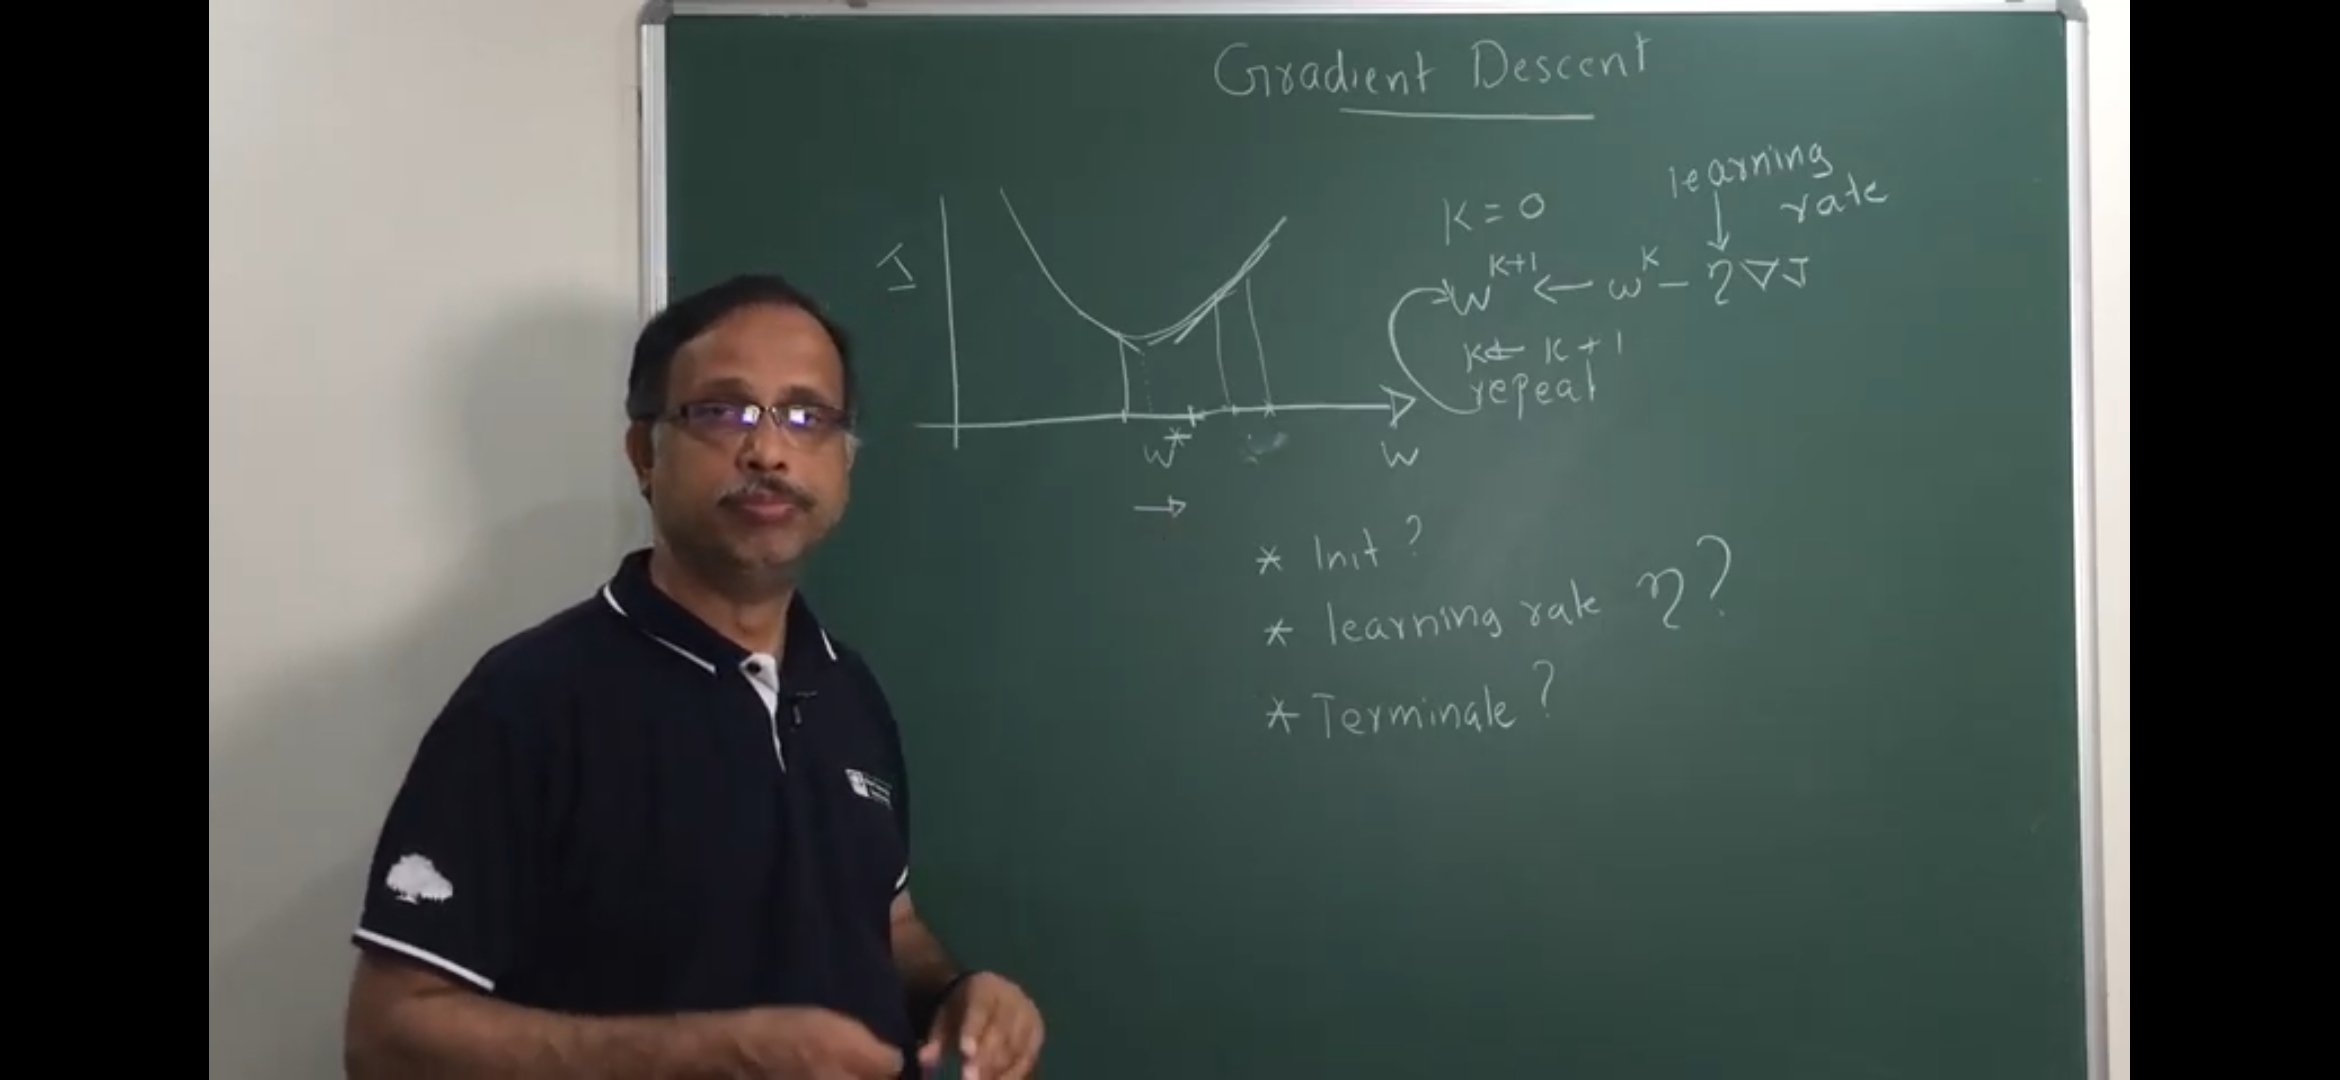 Gradient Descent
J
w*
w
K = 0
learning
rate
w^{k+1} ← w^k − η∇J
k ← k + 1
repeat
* Init ?
* learning rate η?
* Terminate ?